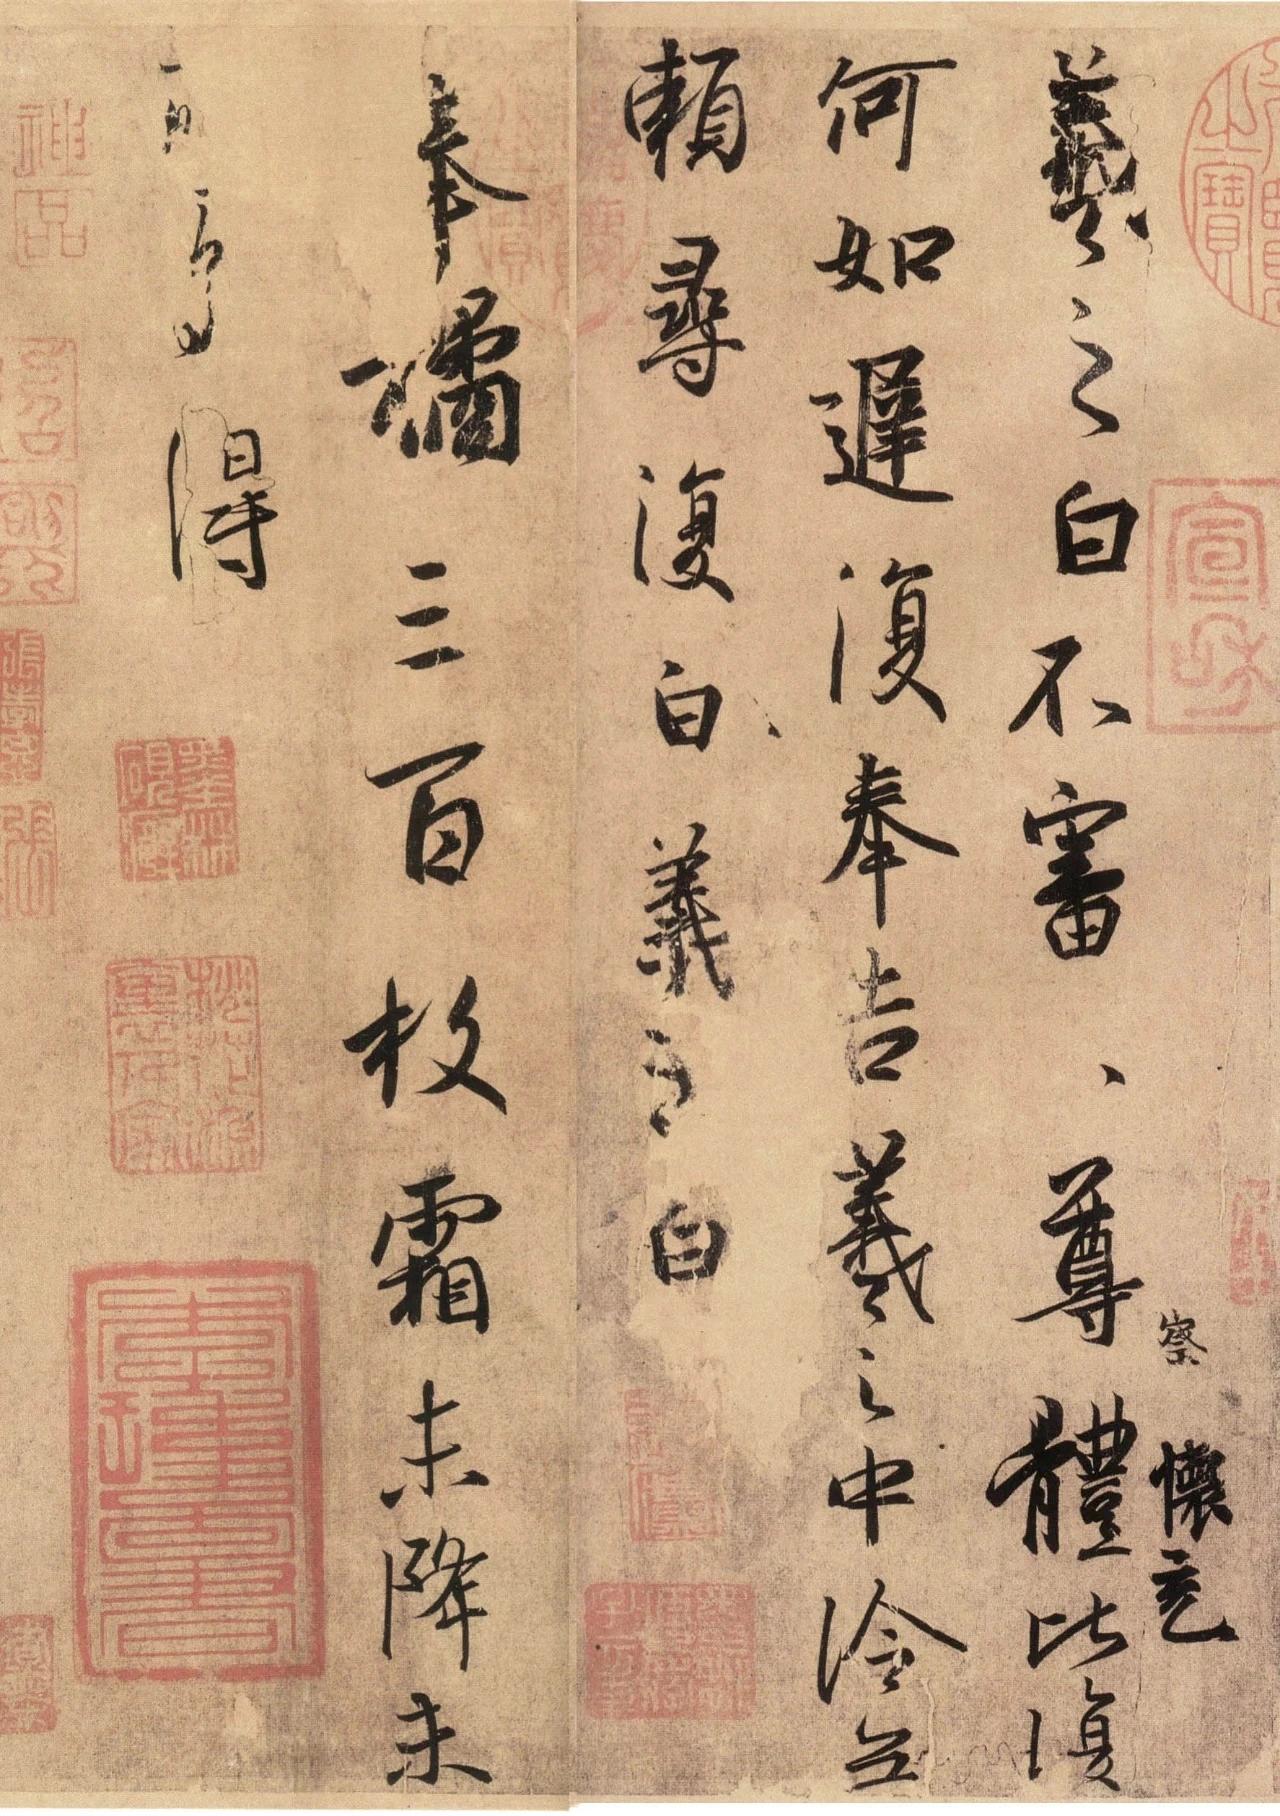 察 懷充
羲之白不審、尊體比復
何如遲復奉告羲之中冷無
賴尋復白羲之白
奉橘三百枚霜未降未
可多得
宣和
神品